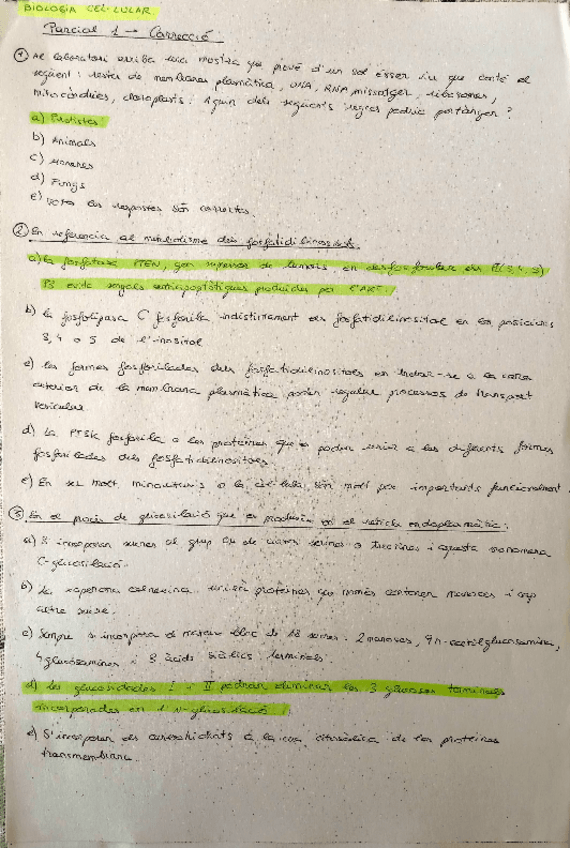 BIOLOGIA CEL·LULAR
Parcial 1 → Correcció
① Al laboratori arriba una mostra que prové d'un sol ésser viu que conté el
següent: restes de membrana plasmàtica, DNA, RNA missatger, ribosomes,
mitocòndries, cloroplasts. A quin dels següents regnes podria pertànyer?
a) Protistes
b) Animals
c) Moneres
d) Fungi
e) Totes les respostes són correctes.
② En referència al metabolisme dels fosfatidilinositols.
a) La fosfatasa PTEN, gen supressor de tumors, en desfosforilar els PI(3,4,5)
P3 evita senyals antiapoptòtiques produïdes per l'AKT.
b) La fosfolipasa C fosforila indistintament els fosfatidilinositol en les posicions
3, 4 o 5 de l'inositol
c) Les formes fosforilades dels fosfatidilinositols en trobar-se a la cara
exterior de la membrana plasmàtica poden regular processos de transport
vesicular
d) La PI3K fosforila a les proteïnes que es poden unir a les diferents formes
fosforilades dels fosfatidilinositols
e) En ser molt minoritaris a la cèl·lula, són molt poc importants funcionalment
③ En el procés de glicosilació que es produeix en el reticle endoplasmàtic:
a) S'incorporen sucres al grup OH de certes serines o treonines i aquesta s'anomena
C-glicosilació.
b) La xaperona calnexina uneix proteïnes que només contenen manoses i cap
altre sucre.
c) Sempre s'incorpora el mateix bloc de 18 sucres. 2 manoses, 9 n-acetilglucosamina,
4 glucosamines i 3 àcids siàlics terminals.
d) Les glucosidades I i II podran eliminar les 3 glucoses terminals
incorporades en l N-glicosilació
e) S'incorporen els carbohidrats a la cara citosòlica de les proteïnes
transmembrana.